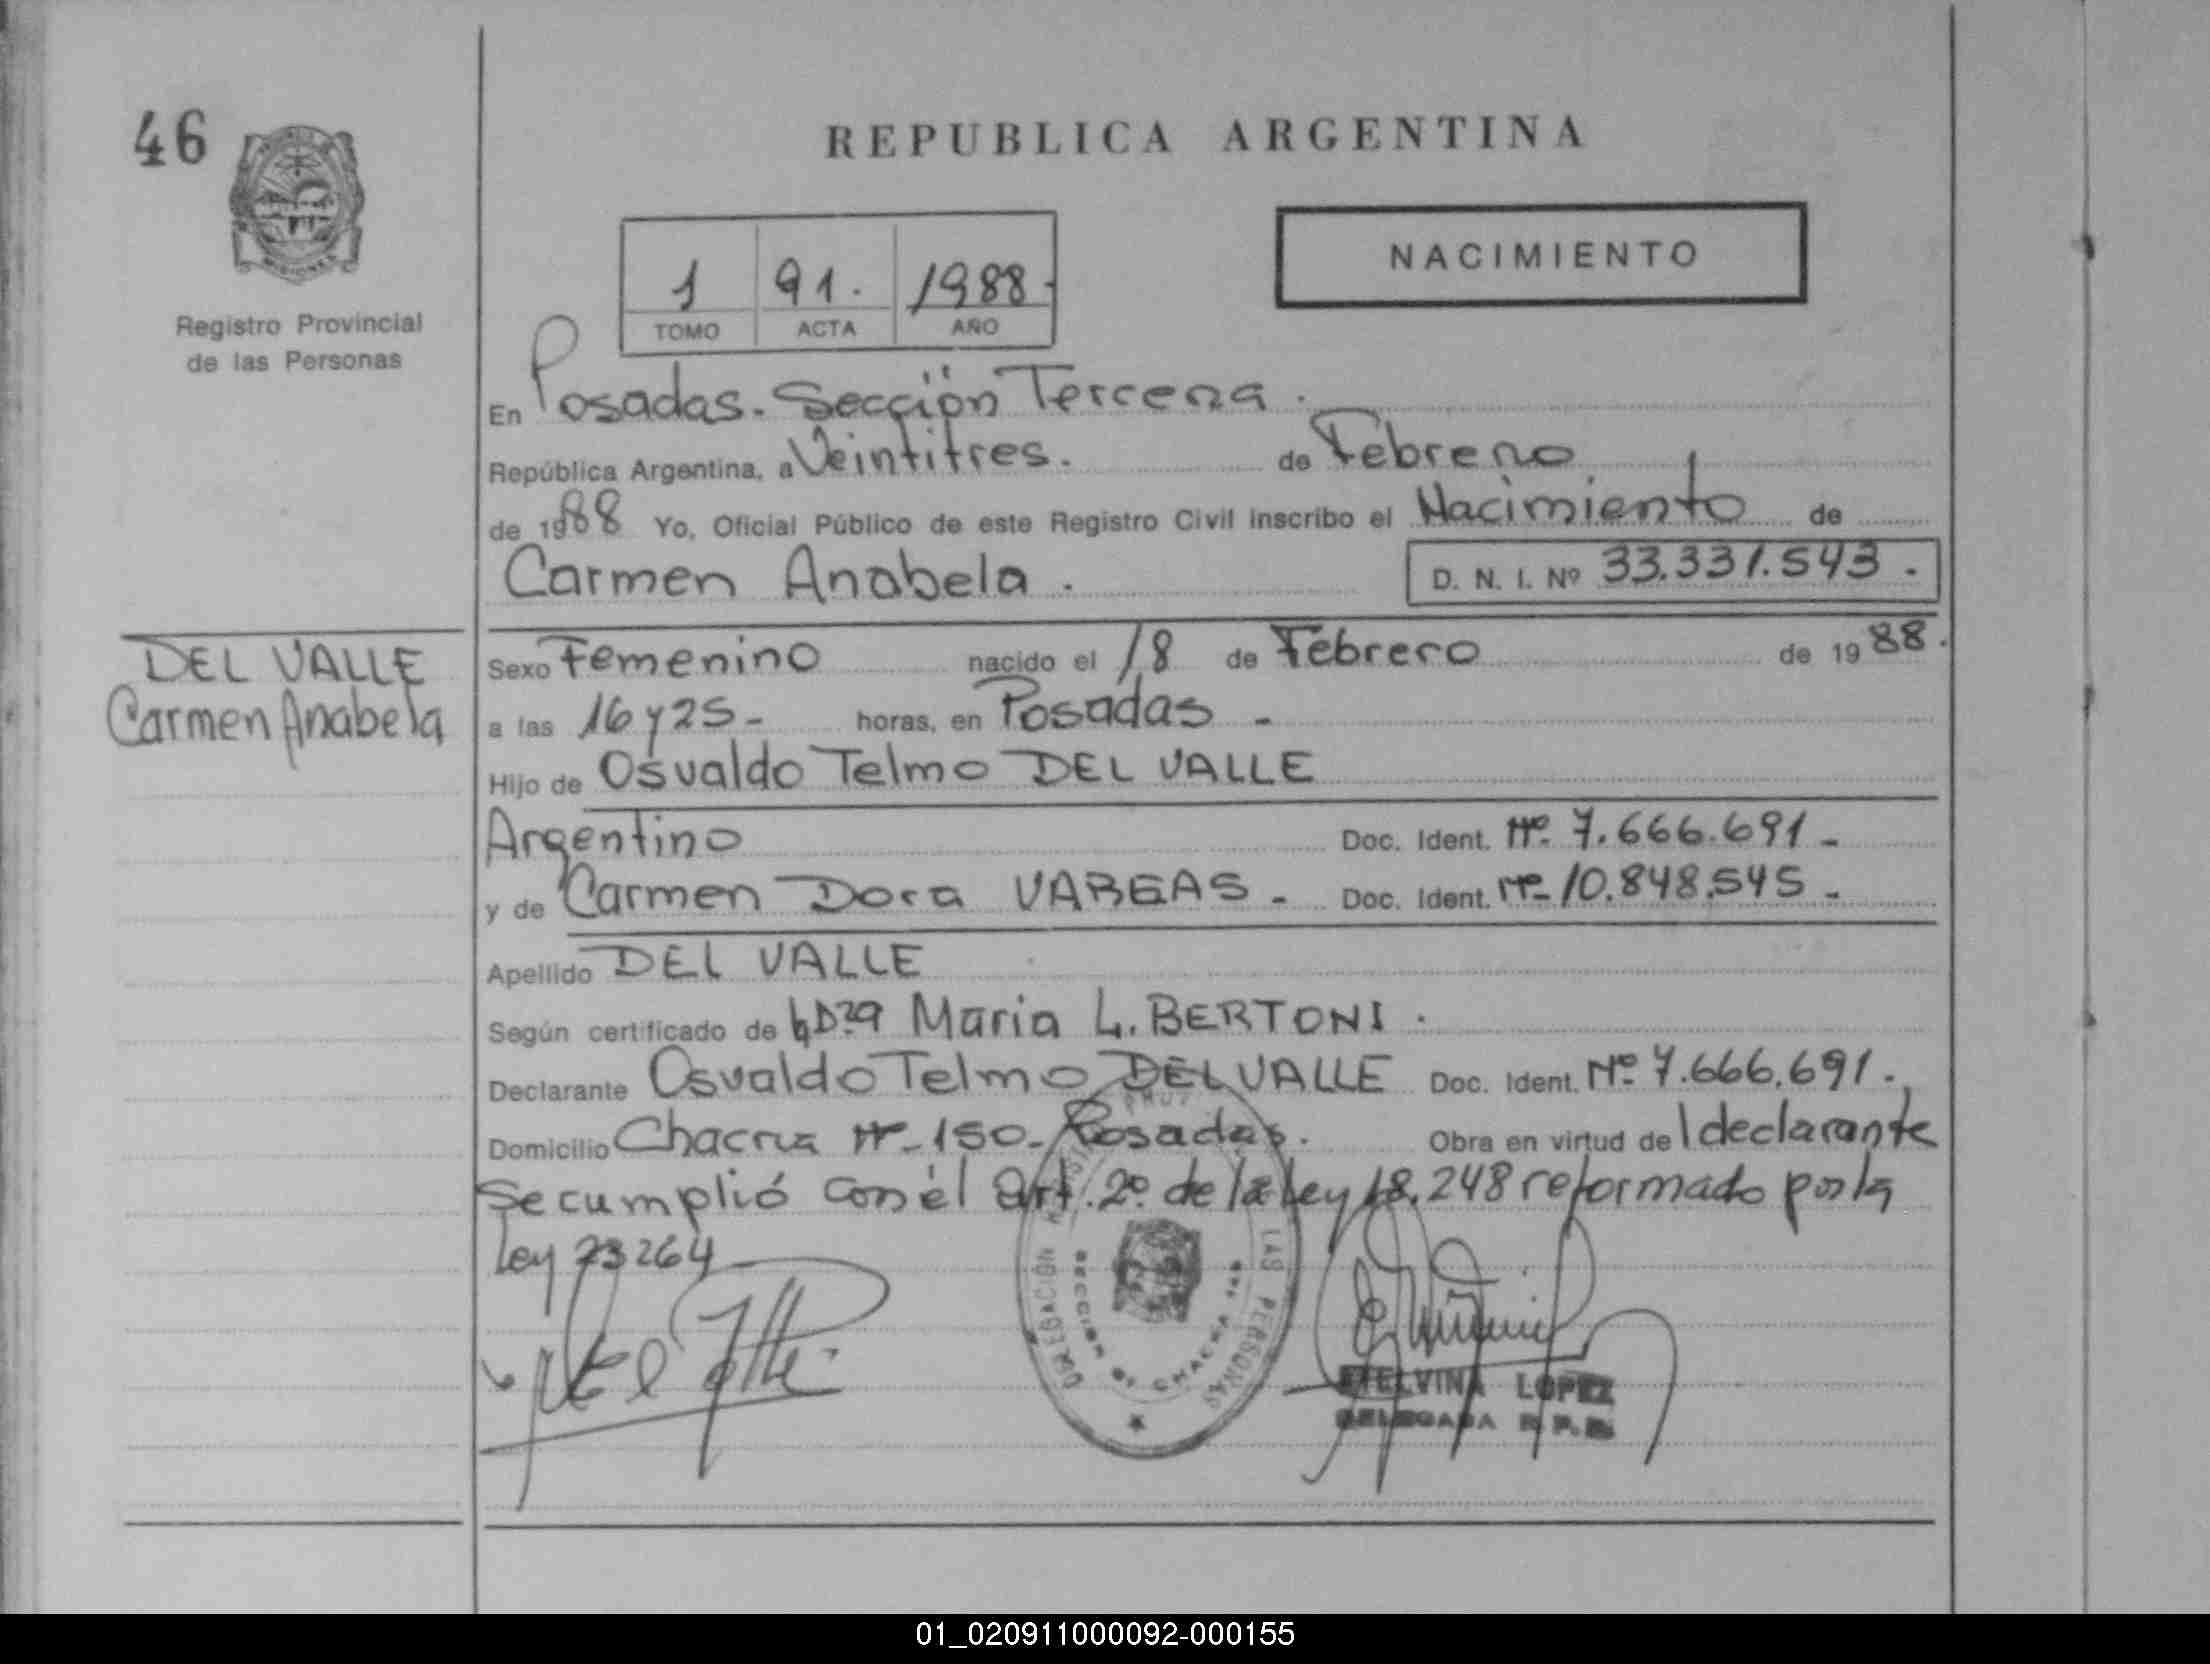 46
REPUBLICA ARGENTINA
NACIMIENTO
1 91. 1988.
TOMO ACTA AÑO
Registro Provincial
de las Personas
MISIONES
En Posadas. Sección Tercera.
República Argentina, a Veintitres. de Febrero
de 1988 Yo, Oficial Público de este Registro Civil inscribo el Nacimiento de
Carmen Anabela. D. N. I. Nº 33.331.543.
DEL VALLE
Carmen Anabela
Sexo Femenino nacido el 18 de Febrero de 1988.
a las 16 y 25- horas, en Posadas -
Hijo de Osvaldo Telmo DEL VALLE
Argentino Doc. Ident. Nº. 7.666.691-
y de Carmen Dora VARGAS- Doc. Ident. Nº 10.848.545-
Apellido DEL VALLE
Según certificado de Maria L. BERTONI.
Declarante Osvaldo Telmo DEL VALLE Doc. Ident. Nº 7.666.691.
Domicilio Chacra Nº 150- Posadas. Obra en virtud de l declarante
Se cumplió con el art. 2º de la Ley 18.248 reformado por la
Ley 23264
DELEGACIÓN LAS PERSONAS
SECCION CHACRA
ETELVINA LOPEZ
DELEGADA R.P.P.
01_020911000092-000155